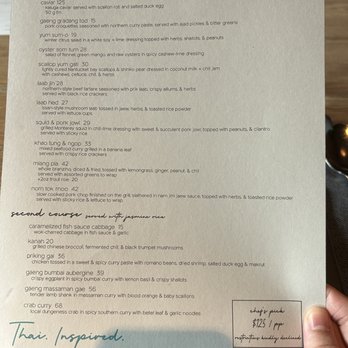 caviar 125
kaluga caviar served with scallion roti and salted duck egg
50 g tin
gaeng gradang tod 15
pork croquettes seasoned with northern curry paste, served with acid pickles & bitter greens
yum som-o 19
winter citrus salad in a white soy + lime dressing topped with herbs, shallots, & peanuts
oyster som tum 28
salad of fennel, green mango and raw oysters in spicy cashew-lime dressing
scallop yum gati 30
lightly cured nantucket bay scallops & shinko pear dressed in coconut milk + chili jam
with cashews, celtuce, chili, & herbs
laab jin 28
northern-style beef tartare seasoned with prik laap, crispy alliums, & herbs
served with black rice crackers
laab hed 27
isaan-style mushroom laab topped in jaew, herbs, & toasted rice powder
served with lettuce cups
squid & pork jowl 29
grilled monterey squid in chili-lime dressing with sweet & succulent pork jowl, topped with peanuts, & cilantro
served with sticky rice
khao tung & ngop 33
mixed seafood curry grilled in a banana leaf
served with crispy rice crackers
miang pla 42
whole branzino, diced & fried, tossed with lemongrass, ginger, peanut, & chili
served with assorted greens to wrap
+2oz trout roe 20
nom tok moo 42
slow cooked pork chop finished on the grill, slathered in nam jim jaew sauce, topped with herbs, & toasted rice powder
served with sticky rice & lettuce to wrap
second course served with jasmine rice
caramelized fish sauce cabbage 15
wok-charred cabbage in fish sauce & garlic
kanah 20
grilled chinese broccoli, fermented chili, & black trumpet mushrooms
priking gai 36
chicken tossed in a sweet & spicy curry paste with romano beans, dried shrimp, salted duck egg & makrut
gaeng bumbai aubergine 39
crispy eggplant in spicy bumbai curry with lemon basil & crispy shallots
gaeng massaman gae 56
tender lamb shank in massaman curry with blood orange & baby scallions
crab curry 68
local dungeness crab in spicy southern curry with betel leaf & garlic noodles
Thai. Inspired.
chef's pick
$125 / pp
restrictions kindly declined